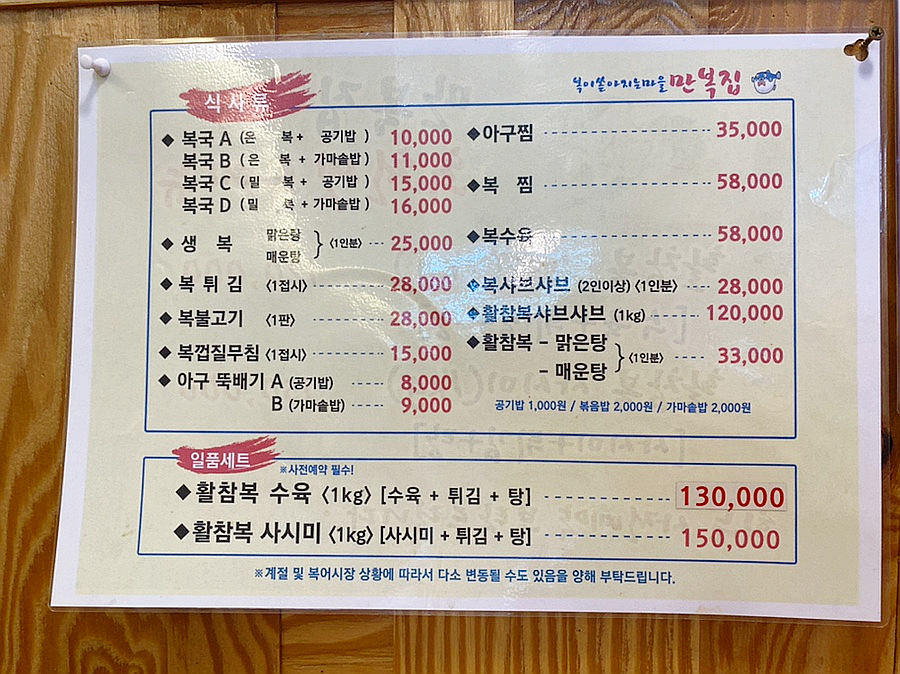 복이쏟아지는마을 만복집
식사류
◆ 복국 A (은 복 + 공기밥) 10,000
복국 B (은 복 + 가마솥밥) 11,000
복국 C (밀 복 + 공기밥) 15,000
복국 D (밀 복 + 가마솥밥) 16,000
◆ 생 복 맑은탕 매운탕 } <1인분> 25,000
◆ 복 튀 김 <1접시> 28,000
◆ 복불고기 <1판> 28,000
◆ 복껍질무침 <1접시> 15,000
◆ 아구 뚝배기 A (공기밥) 8,000
B (가마솥밥) 9,000
◆아구찜 35,000
◆복 찜 58,000
◆복수육 58,000
◆복샤브샤브 (2인이상) <1인분> 28,000
◆활참복샤브샤브 (1kg) 120,000
◆활참복 - 맑은탕
- 매운탕 } <1인분> 33,000
공기밥 1,000원 / 볶음밥 2,000원 / 가마솥밥 2,000원
일품세트
※사전예약 필수!
◆활참복 수육 <1kg> [수육 + 튀김 + 탕] 130,000
◆활참복 사시미 <1kg> [사시미 + 튀김 + 탕] 150,000
※계절 및 복어시장 상황에 따라서 다소 변동될 수도 있음을 양해 부탁드립니다.